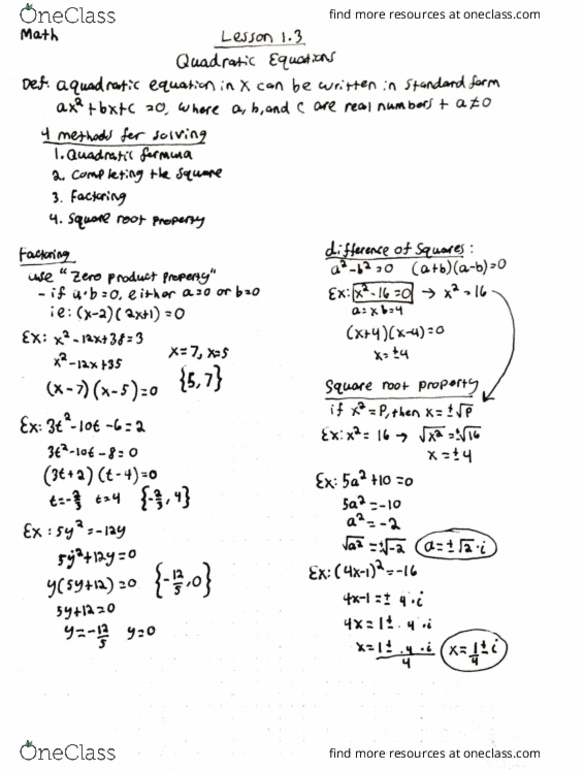 OneClass
find more resources at oneclass.com
Math
Lesson 1.3
Quadratic Equations
Def: a quadratic equation in x can be written in standard form
ax²+bx+c =0, where a, b, and c are real numbers + a≠0
4 methods for solving
1. Quadratic formula
2. Completing the square
3. Factoring
4. Square root property
Factoring
use "Zero product property"
- if a·b=0, either a=0 or b=0
ie: (x-2)(2x+1)=0
Ex: x²-12x+38=3
x²-12x+35
x=7, x=5
(x-7)(x-5)=0 {5,7}
Ex: 3t²-10t-6=2
3t²-10t-8=0
(3t+2)(t-4)=0
t=-2/3 t=4 {-2/3, 4}
Ex: 5y²=-12y
5y²+12y=0
y(5y+12)=0 {-12/5, 0}
5y+12=0
y=-12/5 y=0
difference of squares:
a²-b²=0 (a+b)(a-b)=0
Ex: x²-16=0 → x²=16
a=x b=4
(x+4)(x-4)=0
x=±4
Square root property
if x²=P, then x=±√P
Ex: x²=16 → √x²=±√16
x=±4
Ex: 5a²+10=0
5a²=-10
a²=-2
√a²=±√-2 a=±√2·i
Ex: (4x-1)²=-16
4x-1=± 4·i
4x=1± 4·i
x=1± 4·i/4 x=1/4±i
OneClass
find more resources at oneclass.com